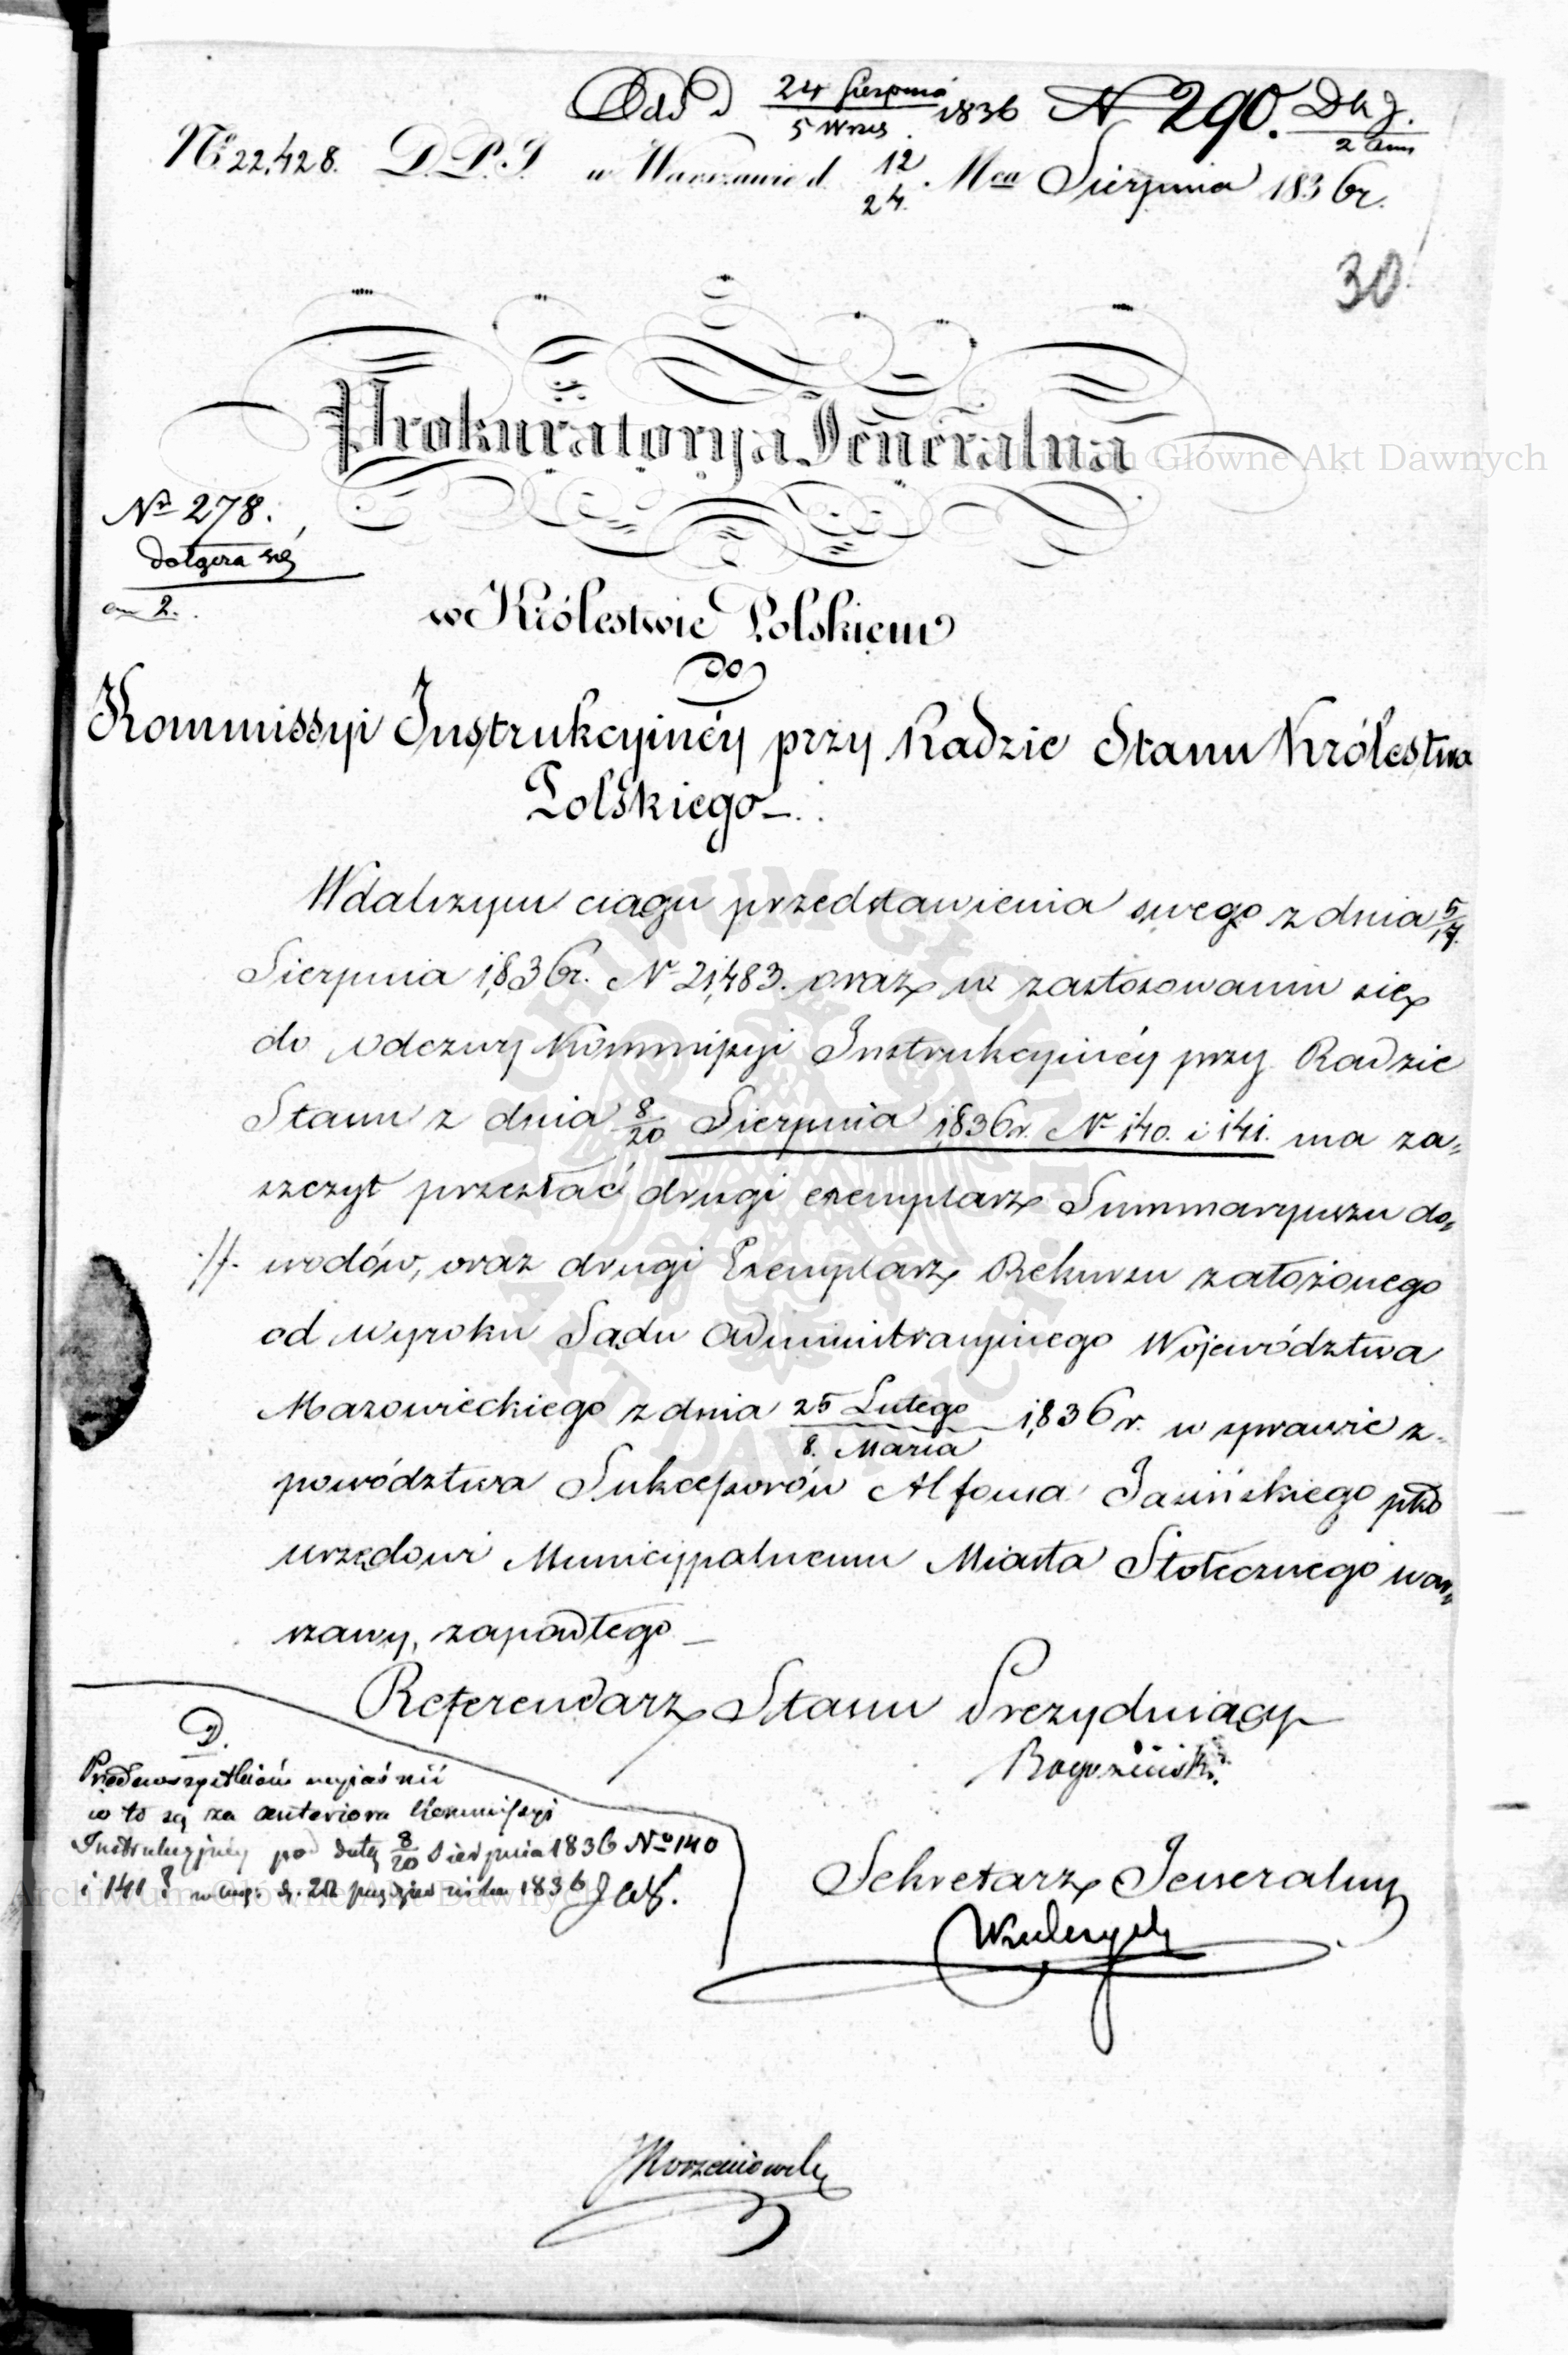 Odd d 24 Sierpnia / 5 Wrzes. 1836 N 290. DKJ. / 2 ann
No 22,428. D.P.S. w Warszawie d. 12/24. Mca Sierpnia 1836r.
30
Prokuratorya Jeneralna
Nr 278.
dołącza się
an 2.
w Królestwie Polskiem
do
Kommissyi Instrukcyinéy przy Radzie Stanu Królestwa
Polskiego
W dalszym ciągu przedstawienia swego z dnia 5/17.
Sierpnia 1836r. N 21,483. oraz w zastosowaniu się
do odezwy Kommissyi Instrukcyinéy przy Radzie
Stanu z dnia 8/20 Sierpnia 1836r. N 140. i 141. ma za=
szczyt przesłać drugi exemplarz Summaryuszu do=
./. wodów, oraz drugi Exemplarz Rekursu założonego
od wyroku Sądu Administracyinego Województwa
Mazowieckiego z dnia 25 Lutego / 8. Marca 1836 r. w sprawie z=
powództwa Sukcessorów Alfonsa Jasińskiego pko
urzędowi Municypalnemu Miasta Stołecznego War=
szawy, zapadłego
Referendarz Stanu Prezyduiący
Sekretarz Jeneralny
D.
Przedewszystkiem wyjaśnić
co to są za anteriora Kommissyi
Instrukcyjnéj pod datą 8/20 Sierpnia 1836 No 140
i 141? d. 22 października 1836
JKorzeniowski
Archiwum Główne Akt Dawnych
ARCHIWUM GŁÓWNE AKT DAWNYCH
Archiwum Główne Akt Dawnych